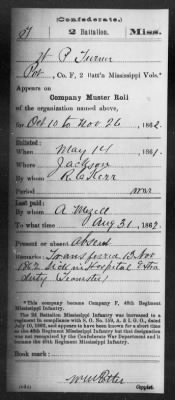 (Confederate.)
T 2 Battalion. Miss.
W P Turner
Pvt, Co. F, 2 Batt'n Mississippi Vols.*
Appears on
Company Muster Roll
of the organization named above,
for Oct 10 to Nov 26, 1862.
Enlisted:
When May 14, 1861.
Where Jackson
By whom
Period war
Last paid:
By whom A Mizell
To what time Aug 31, 1862.
Present or absent Absent
Remarks: Transferred 13 Nov
1862 Sick in Hospital Extra
duty Teamster
*This company became Company F, 48th Regiment
Mississippi Infantry.
The 2d Battalion Mississippi Infantry was increased to a
regiment in compliance with S. O. No. 159, A. & I. G. O., dated
July 10, 1862, and appears to have been known for a short time
as the 48th Regiment Mississippi Infantry but that designation
was not recognized by the Confederate War Department and it
became the 48th Regiment Mississippi Infantry.
Book mark:
(642)
Copyist.